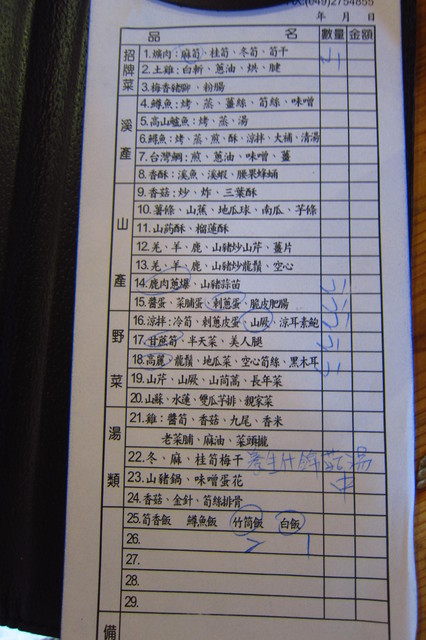 FAX:(049)2754855
年 月 日
品 名 數量 金額
招牌菜
1. 爌肉:麻筍、桂筍、冬筍、筍干
2. 土雞:白斬、蔥油、烘、腱
3. 梅香豬腳、粉腸
溪產
4. 鱒魚:烤、蒸、薑絲、筍絲、味噌
5. 高山鱸魚:烤、蒸、湯
6. 鱘魚:烤、蒸、煎、酥、涼拌、大補、清湯
7. 台灣鯛:煎、蔥油、味噌、薑
8. 香酥:溪魚、溪蝦、腰果蜂蛹
山產
9. 香菇:炒、炸、三葉酥
10. 薯條、山蕉、地瓜球、南瓜、芋條
11. 山药酥、榴蓮酥
12. 羌、羊、鹿、山豬炒山芹、薑片
13. 羌、羊、鹿、山豬炒龍鬚、空心
14. 鹿肉蔥爆、山豬蒜苗
15. 醬蛋、菜脯蛋、刺蔥蛋、脆皮肥腸
野菜
16. 涼拌:冷筍、刺蔥皮蛋、山厥、涼耳素鮑
17. 甘蔗筍、半天菜、美人腿
18. 高麗、龍鬚、地瓜菜、空心筍絲、黑木耳
19. 山芹、山厥、山茼蒿、長年菜
20. 山蘇、水蓮、雙瓜芋排、親家菜
湯類
21. 雞:醬筍、香菇、九尾、香米
老菜脯、麻油、菜頭攏
22. 冬、麻、桂筍梅干 養生什錦菇湯
23. 山豬鍋、味噌蛋花 中
24. 香菇、金針、筍絲排骨
25. 筍香飯 鱒魚飯 竹筒飯 白飯
26. 2 1
27.
28.
29.
備